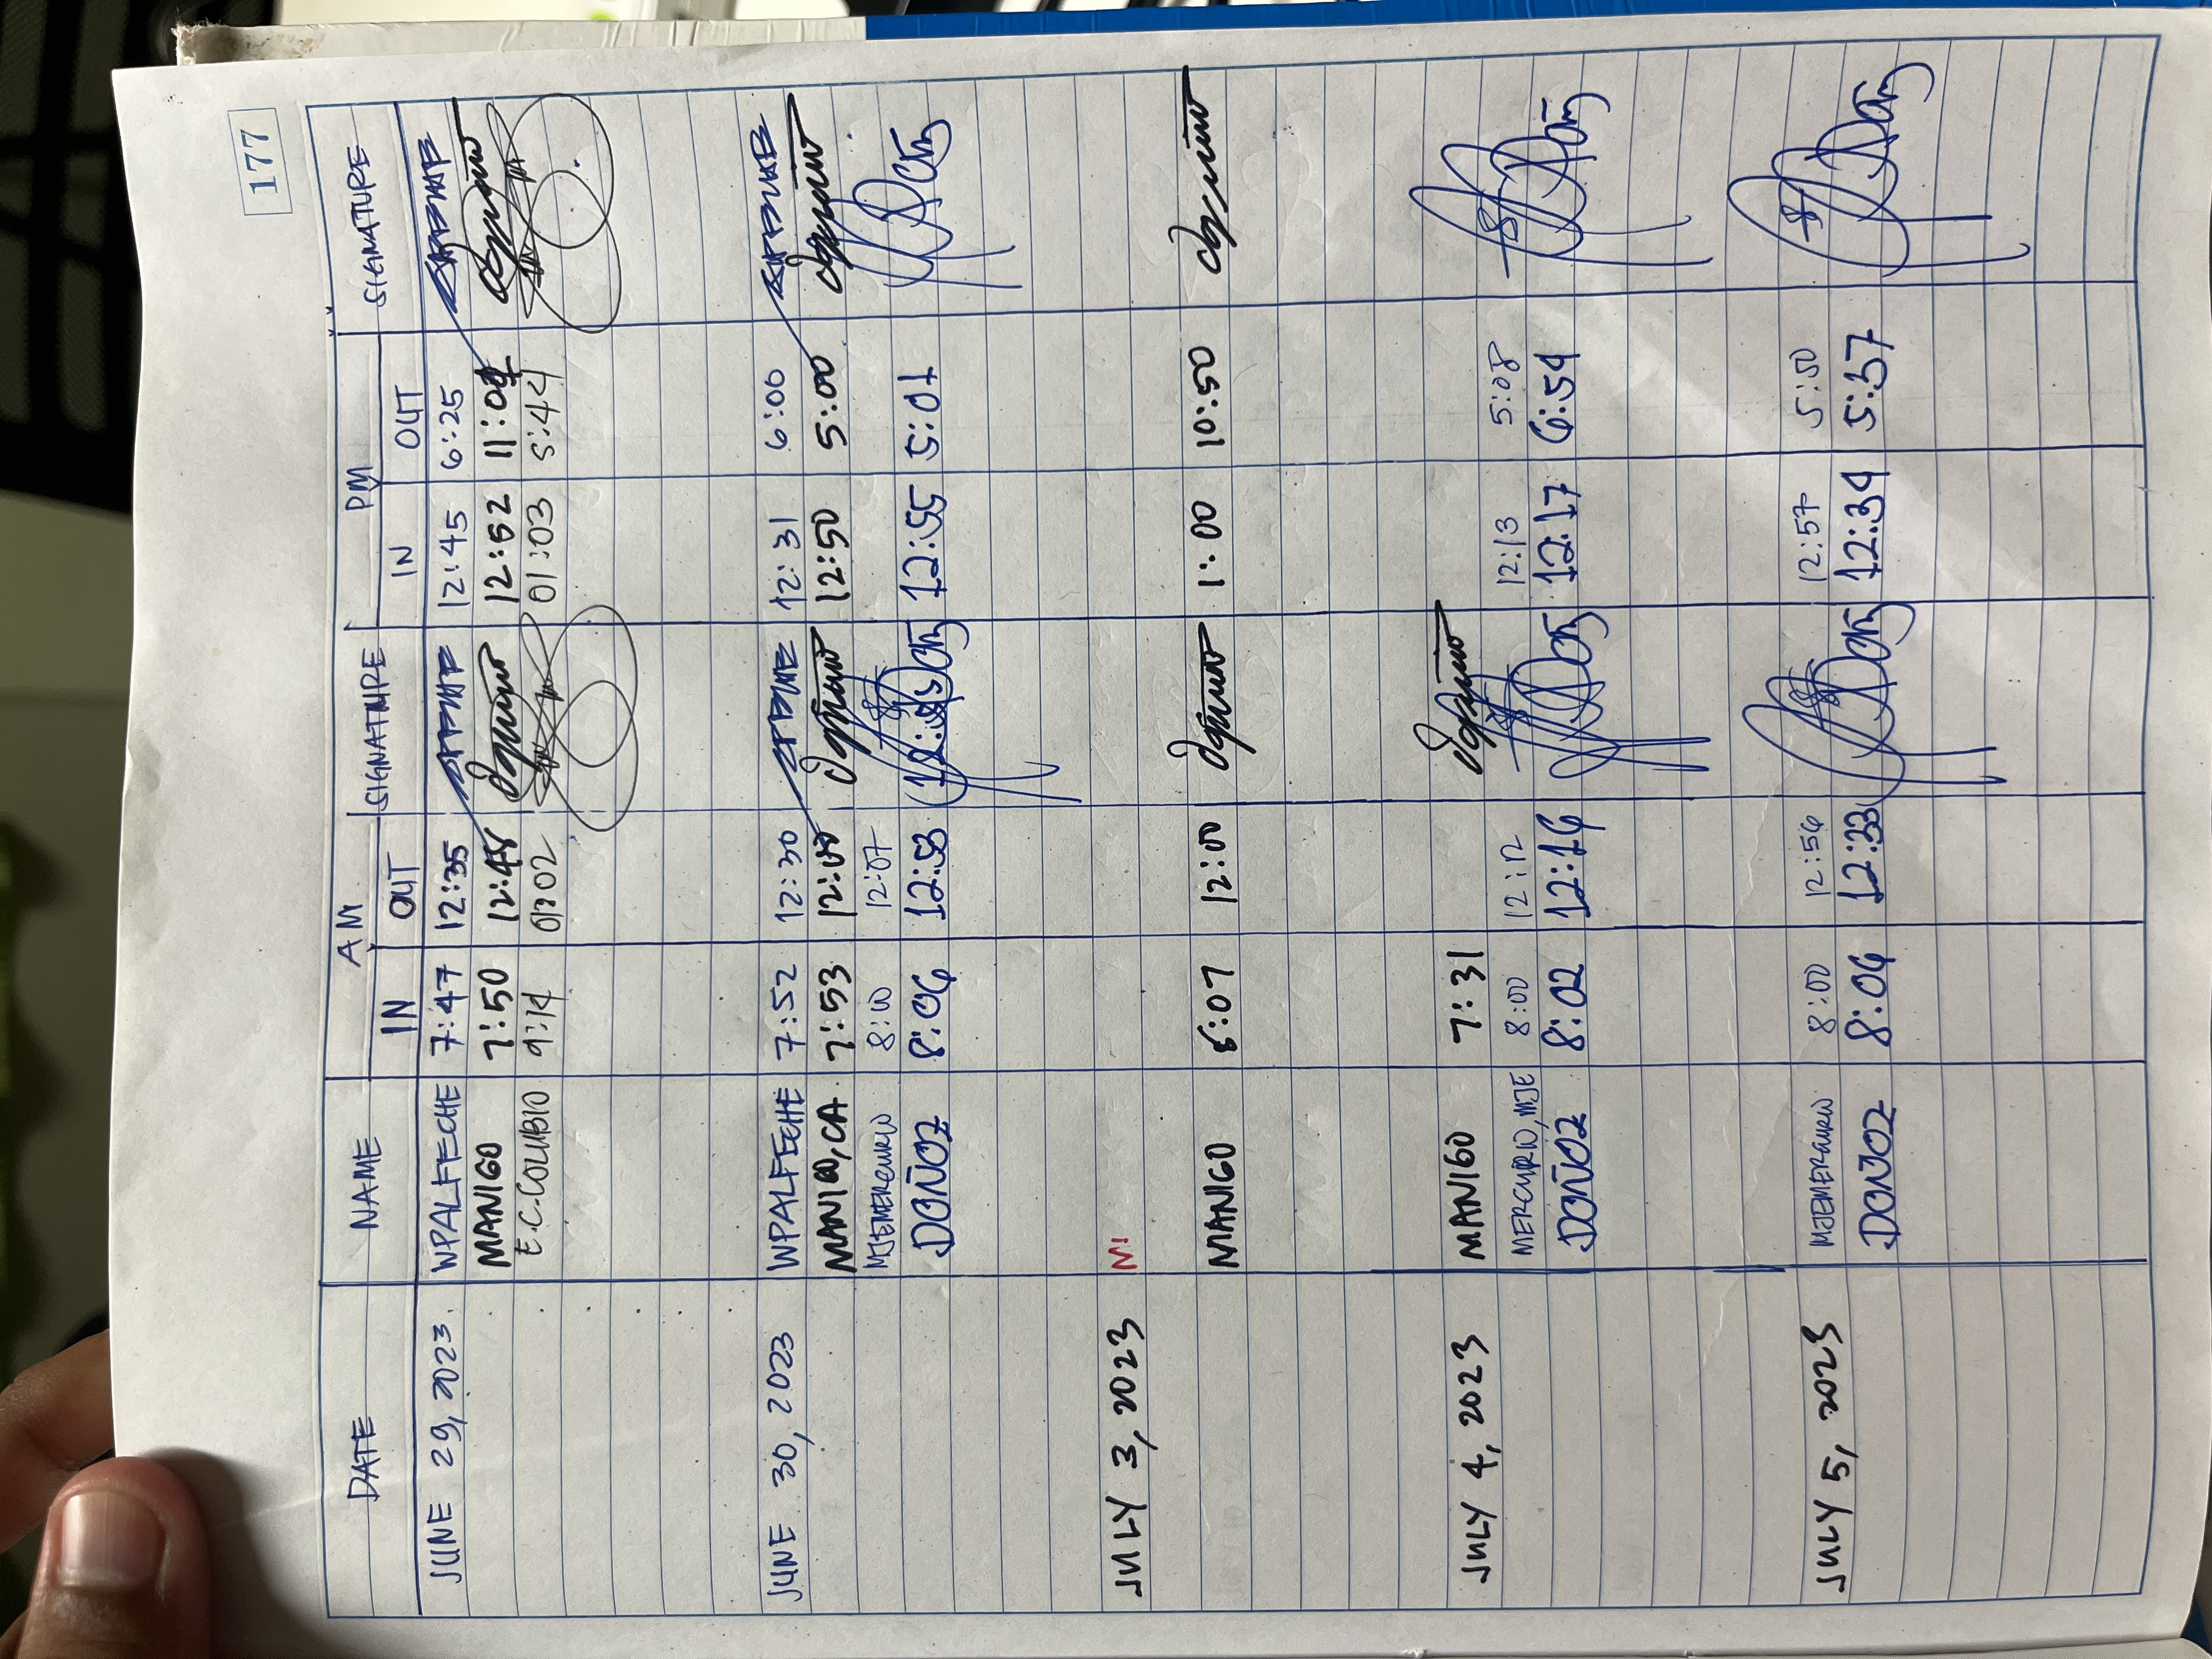 177
DATE NAME AM PM
IN OUT SIGNATURE IN OUT SIGNATURE
JUNE 29, 2023. WPALFECHE 7:47 12:35 12:45 6:25
MANIGO 7:50 12:48 12:52
E.C. COLUBIO 9:14 01:02 01:03 5:44
JUNE 30, 2023 WPALFECHE 7:52 12:30 12:31 6:00
MANIGO, CA. 7:53 12:00 12:50 5:00
MJEMERCURIO 8:00 12:07
DOÑOZ 8:06 12:53 12:55 5:01
JULY 3, 2023 M
MANIGO 6:07 12:00 1:00 10:50
JULY 4, 2023 MANIGO 7:31
MERCURIO, MJE 8:00 12:12 12:13 5:08
DOÑOZ 8:02 12:16 12:17 6:54
JULY 5, 2023 MJEMERCURIO 8:00 12:56 12:57 5:50
DOÑOZ 8:06 12:33 12:34 5:57